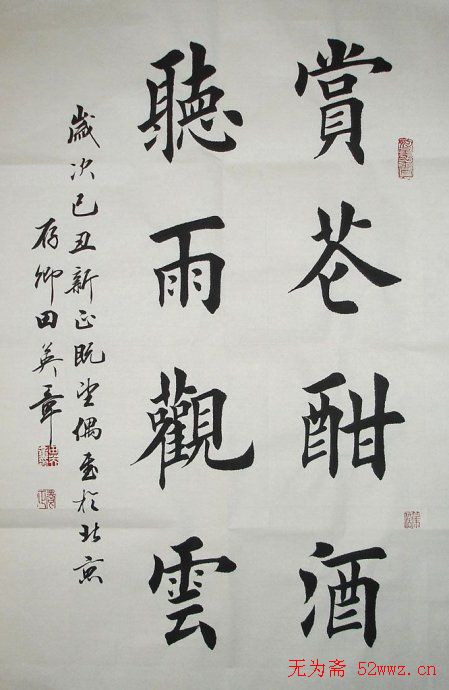 賞花酣酒
聽雨觀雲
歲次己丑新正既望偶書於北京
存卿田英章
无为斋 52wwz.cn